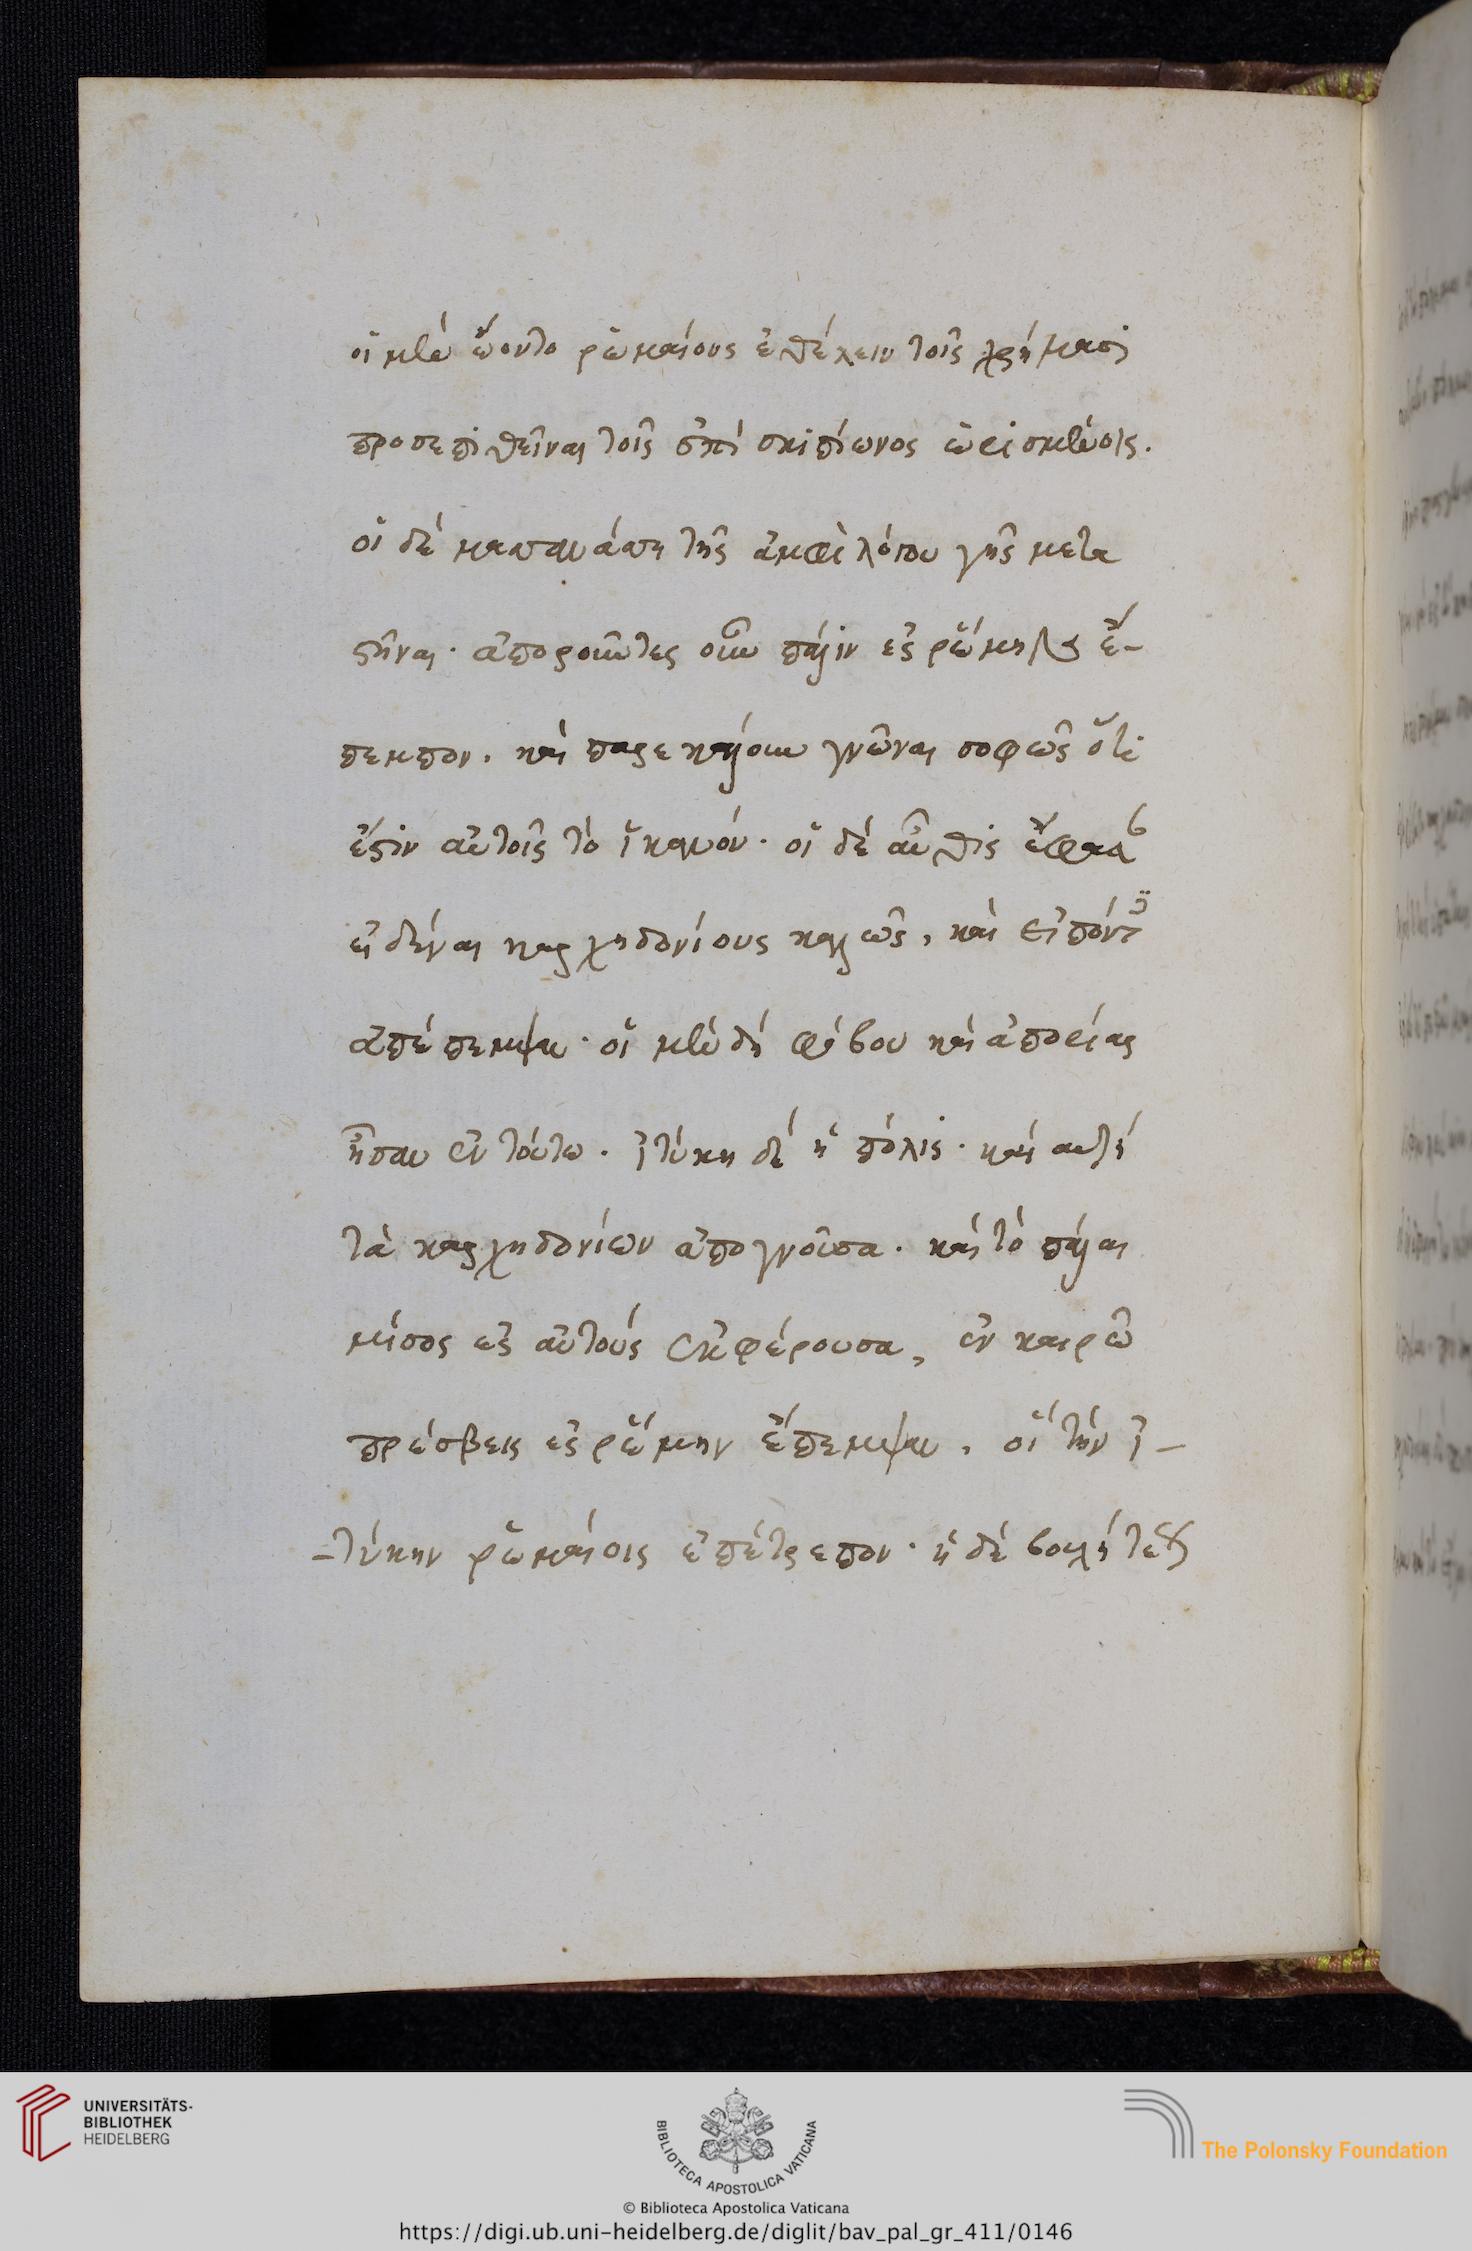 οἱ μὲν ᾤοντο ῥωμαίους ἐθέλειν τοῖς χρήμασι
προσεπιθεῖναι τοῖς ἐπὶ σκιπίωνος ὡρισμένοις.
οἱ δὲ μασσανάσση τῆς ἀμφιλόγου γῆς μετα
στῆναι· ἀποροῦντες οὖν πάλιν ἐς ῥώμην ἔ-
πεμπον. καὶ παρεκάλουν γνῶναι σοφῶς ὅτι
ἐστὶν αὐτοῖς τὸ ἱκανόν· οἱ δὲ αὖθις ἔφασαν
εἰδέναι καρχηδονίους καλῶς, καὶ εἰπόντες
ἀπέπεμψαν· οἱ μὲν δὴ φόβου καὶ ἀπορίας
ἦσαν ἐν τούτω. ἰτύκη δὲ ἡ πόλις· καὶ αὐτὴ
τὰ καρχηδονίων ἀπογνοῦσα. καὶ τὸ πάλαι
μῖσος ἐς αὐτοὺς ἐκφέρουσα, ἐν καιρῶ
πρέσβεις ἐς ῥώμην ἔπεμψαν, οἳ τὴν ἰ-
-τύκην ῥωμαίοις ἐπέτρεπον· ἡ δὲ βουλὴ
UNIVERSITÄTS-
BIBLIOTHEK
HEIDELBERG
BIBLIOTECA APOSTOLICA VATICANA
The Polonsky Foundation
© Biblioteca Apostolica Vaticana
https://digi.ub.uni-heidelberg.de/diglit/bav_pal_gr_411/0146